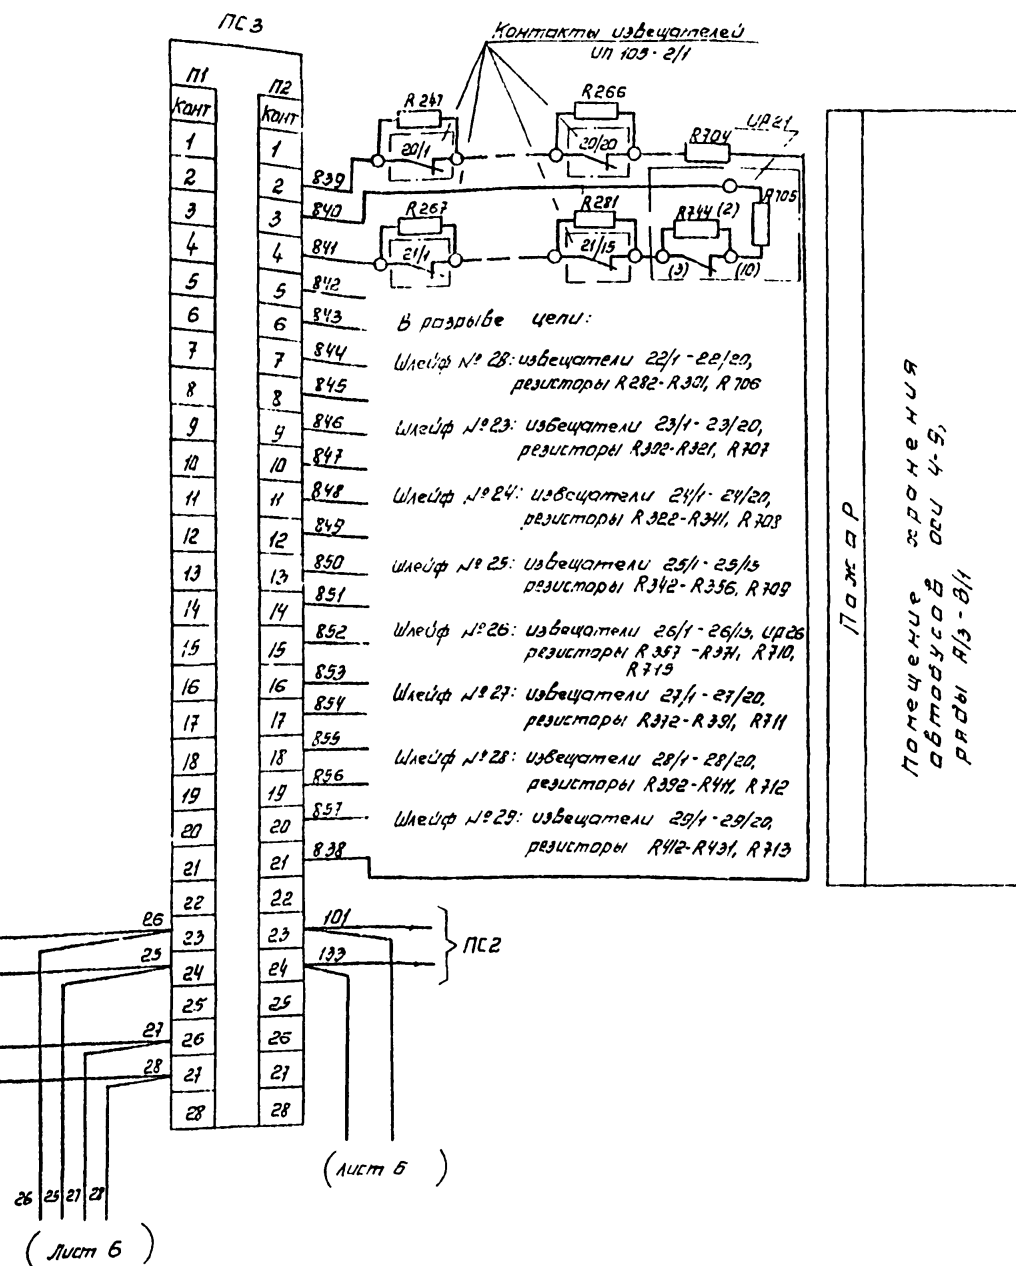 ПС3
Контакты извещателей
ИП 103-2/1
П1
П2
Конт
Конт
1
2
3
4
5
6
7
8
9
10
11
12
13
14
15
16
17
18
19
20
21
22
23
24
25
26
27
28
1
2
3
4
5
6
7
8
9
10
11
12
13
14
15
16
17
18
19
20
21
22
23
24
25
26
27
28
R247
R266
R704
УР21
20/1
20/20
R705
R267
R281
R744 (2)
21/1
21/15
(3)
(10)
839
840
841
842
843
844
845
846
847
848
849
850
851
852
853
854
855
856
857
838
101
133
ПС2
В разрыве цепи:
Шлейф №28: извещатели 22/1-22/20,
резисторы R282-R301, R706
Шлейф №23: извещатели 23/1-23/20,
резисторы R302-R321, R707
Шлейф №24: извещатели 24/1-24/20,
резисторы R322-R341, R708
Шлейф №25: извещатели 25/1-25/15
резисторы R342-R356, R709
Шлейф №26: извещатели 26/1-26/15, УР26
резисторы R357-R371, R710,
R715
Шлейф №27: извещатели 27/1-27/20,
резисторы R372-R391, R711
Шлейф №28: извещатели 28/1-28/20,
резисторы R392-R411, R712
Шлейф №29: извещатели 29/1-29/20,
резисторы R412-R431, R713
Пожар
Помещение хранения
автобусов оси 4-9,
ряды А/3-В/1
26
25
27
28
26
25
27
28
(Лист 6)
(Лист 6)